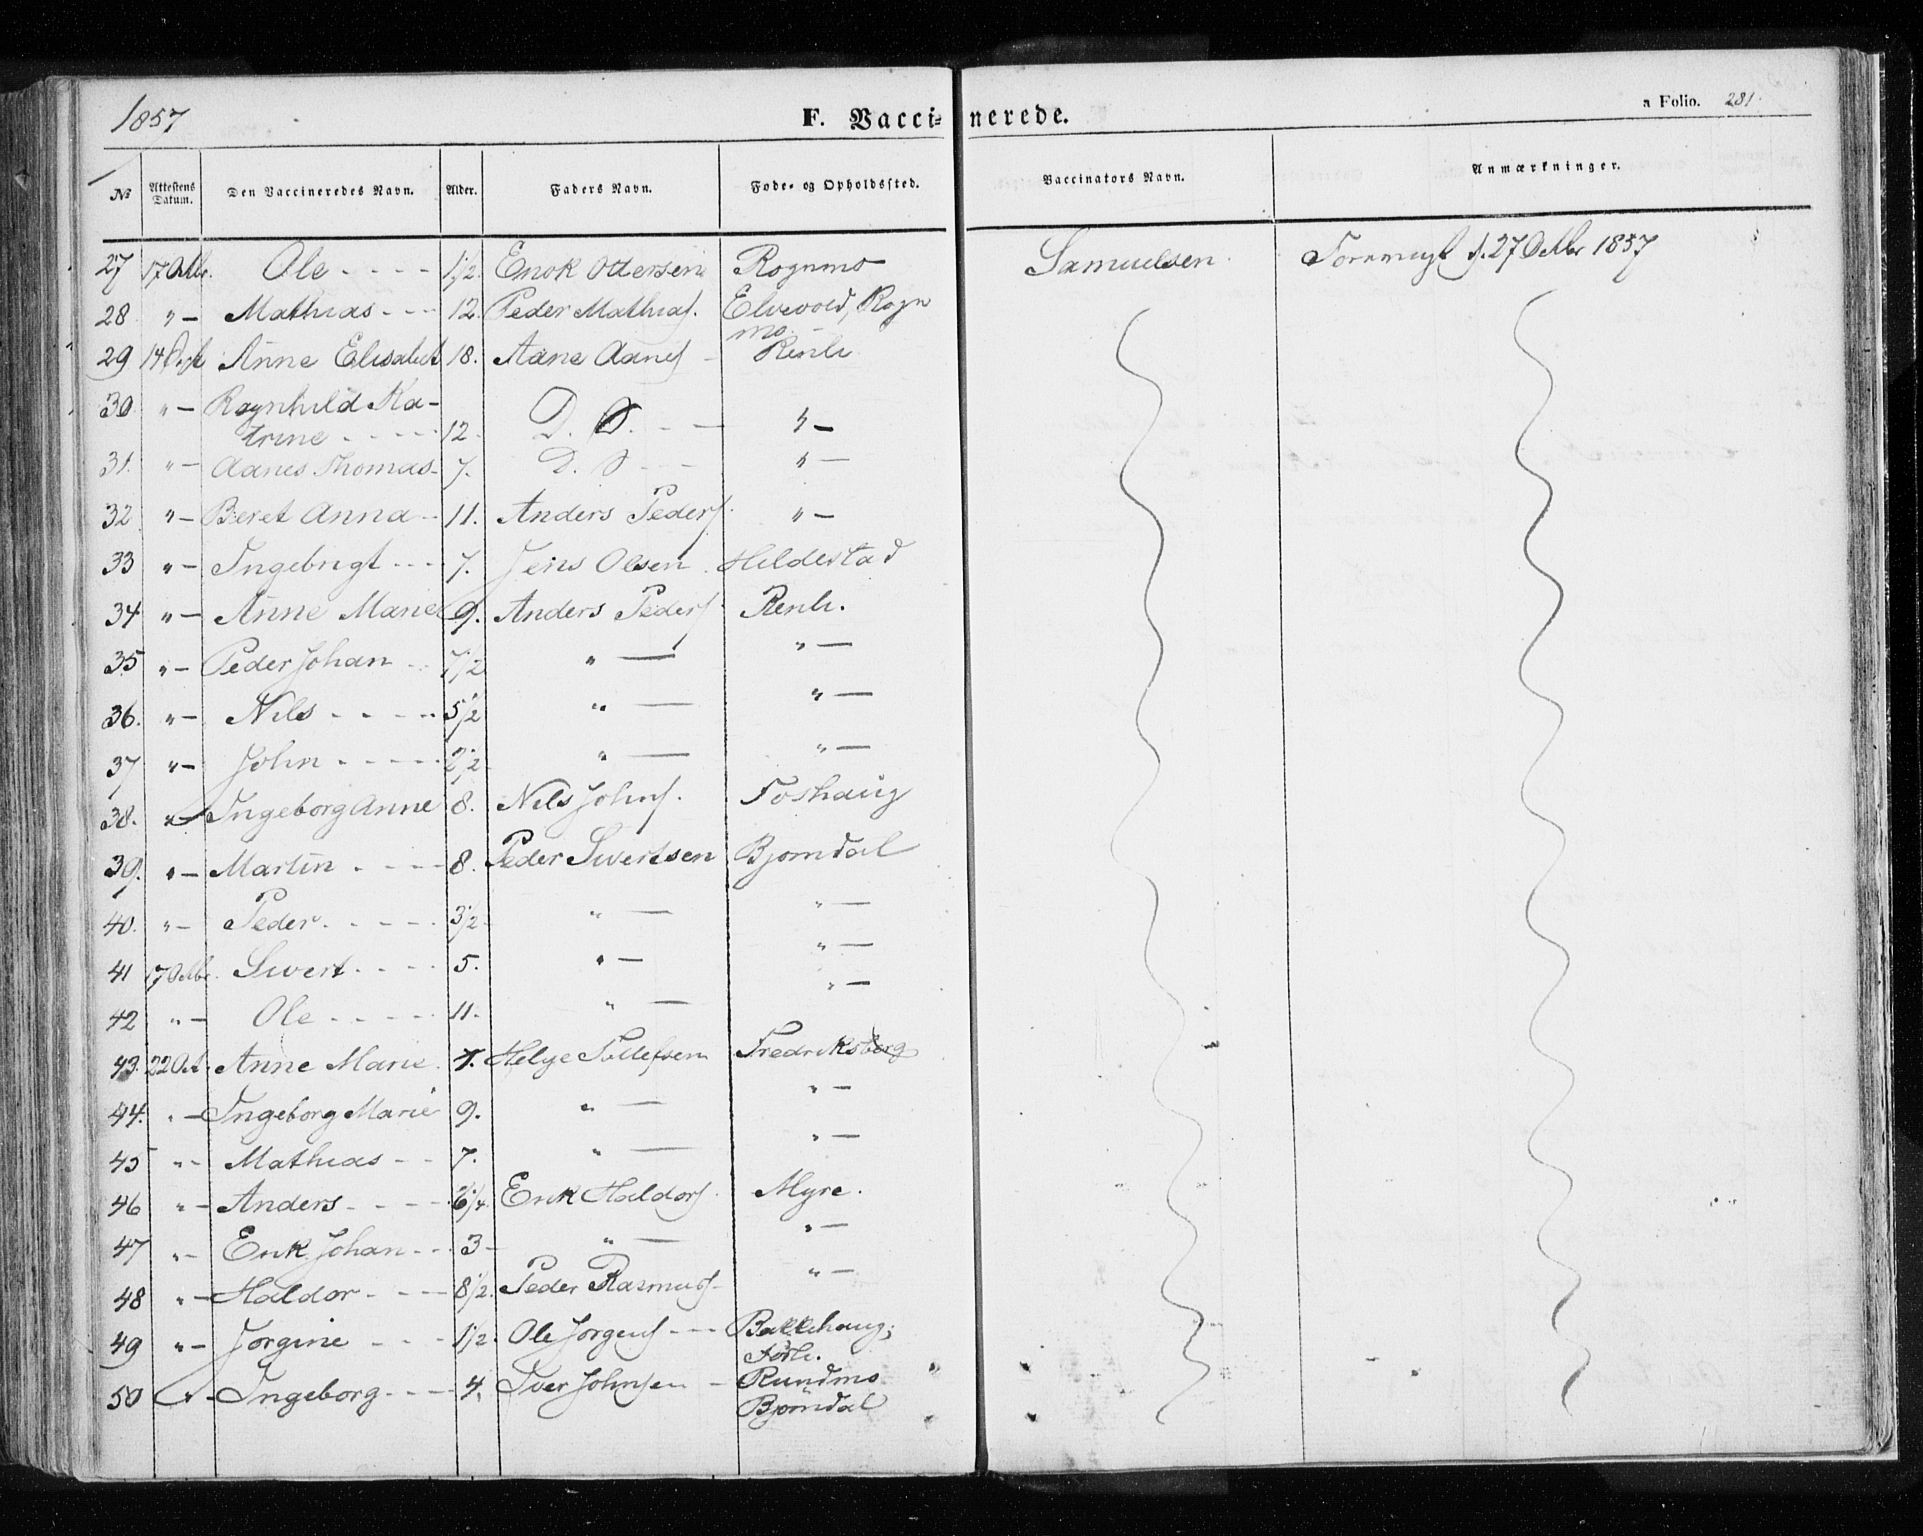 1857
F. Vaccinerede.
a Folio. 281.
No Attestens Datum. Den Vaccineredes Navn. Alder. Faders Navn. Føde- og Opholdssted. Vaccinators Navn. Anmærkninger.
27 17 Octbr. Ole 1 1/2 Enok Ottersen Rognmo Samuelsen 27 Octbr 1857
28 " — Mathias 12. Peder Mathias. Elvevold, Rogn
mo
29 Anne Elisabet 18. Aane Aanes Renli
30 " — Ragnhild Ka-
trine 12 D. O. " —
31. " — Aanes Thomas 7. D. O " —
32 " — Beret Anna 11. Anders Peders. " —
33 " — Ingebrigt 7. Jens Olsen Hildestad
34 " — Anne Marie 9. Anders Peders Renli.
35 " — Peder Johan 7 1/2 " — " —
36. " — Nils 5 1/2 " — " —
37 " — John 2 1/2 " — " —
38. " — Ingeborg Anne 8. Nils Johns. Foshaug
39. " — Martin 8. Peder Sivertsen Bjørndal
40. " — Peder 3 1/2 " — " —
41 17 Octbr. Sivert 5. " — " —
42 " — Ole 11. " — " —
43. 22 Oct. Anne Marie Helge Tollefsen Fredriksberg
44. " — Ingeborg Marie 9. " — " —
45 " — Mathias 7. " — " —
46 " — Anders 6 1/4 Erik Haldors. Myre.
47 " — Erik Johan 3 " — " —
48 " — Haldor 8 1/2 Peder Rasmus " —
49 " — Jørgine 1 1/2 Ole Jørgens Bakkehaug;
50 " — Ingeborg 4. Iver Johnsen Rundmo
Bjørndal